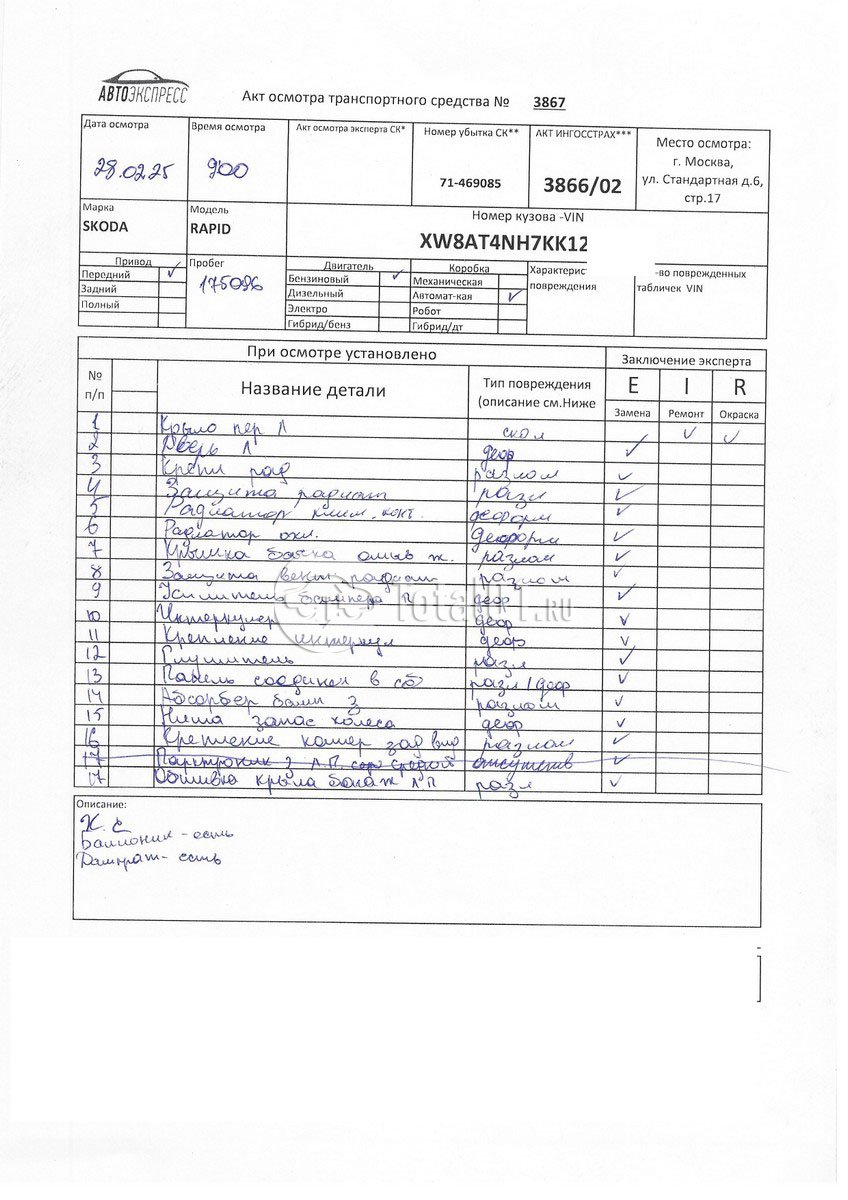 АВТОЭКСПРЕСС
Акт осмотра транспортного средства № 3867
Дата осмотра
28.02.25
Время осмотра
900
Акт осмотра эксперта СК*
Номер убытка СК**
71-469085
АКТ ИНГОССТРАХ***
3866/02
Место осмотра:
г. Москва,
ул. Стандартная д.6,
стр.17
Марка
SKODA
Модель
RAPID
Номер кузова -VIN
XW8AT4NH7KK12
Привод
Передний ✓
Задний
Полный
Пробег
175096
Двигатель
Бензиновый ✓
Дизельный
Электро
Гибрид/бенз
Коробка
Механическая
Автомат-кая ✓
Робот
Гибрид/дт
Характерис
повреждения
-во поврежденных
табличек VIN
При осмотре установлено
Заключение эксперта
№
п/п
Название детали
Тип повреждения
(описание см.Ниже
E I R
Замена Ремонт Окраска
1 Крыло пер Л скол ✓ ✓
2 Дверь Л деф ✓
3 Крепл рад разлом ✓
4 Защита радиат разл ✓
5 Радиатор клим. конт. деформ ✓
6 Радиатор охл. деформ ✓
7 Крышка бачка омыв ж. разлом ✓
8 Защита вент радиат разлом ✓
9 Усилитель бампера П деф ✓
10 Интеркулер деф ✓
11 Крепление интеркул деф ✓
12 Глушитель разл ✓
13 Панель соединен в сб разл/деф ✓
14 Абсорбер бамп з разлом ✓
15 Ниша запас колеса деф ✓
16 Крепление камер зад вид разлом ✓
17 Парктроник з Л.П. сред ✓
17 Обшивка крыла багаж Л П разл ✓
TotalKar1.RU
Описание:
Баллоник - есть
Домкрат - есть